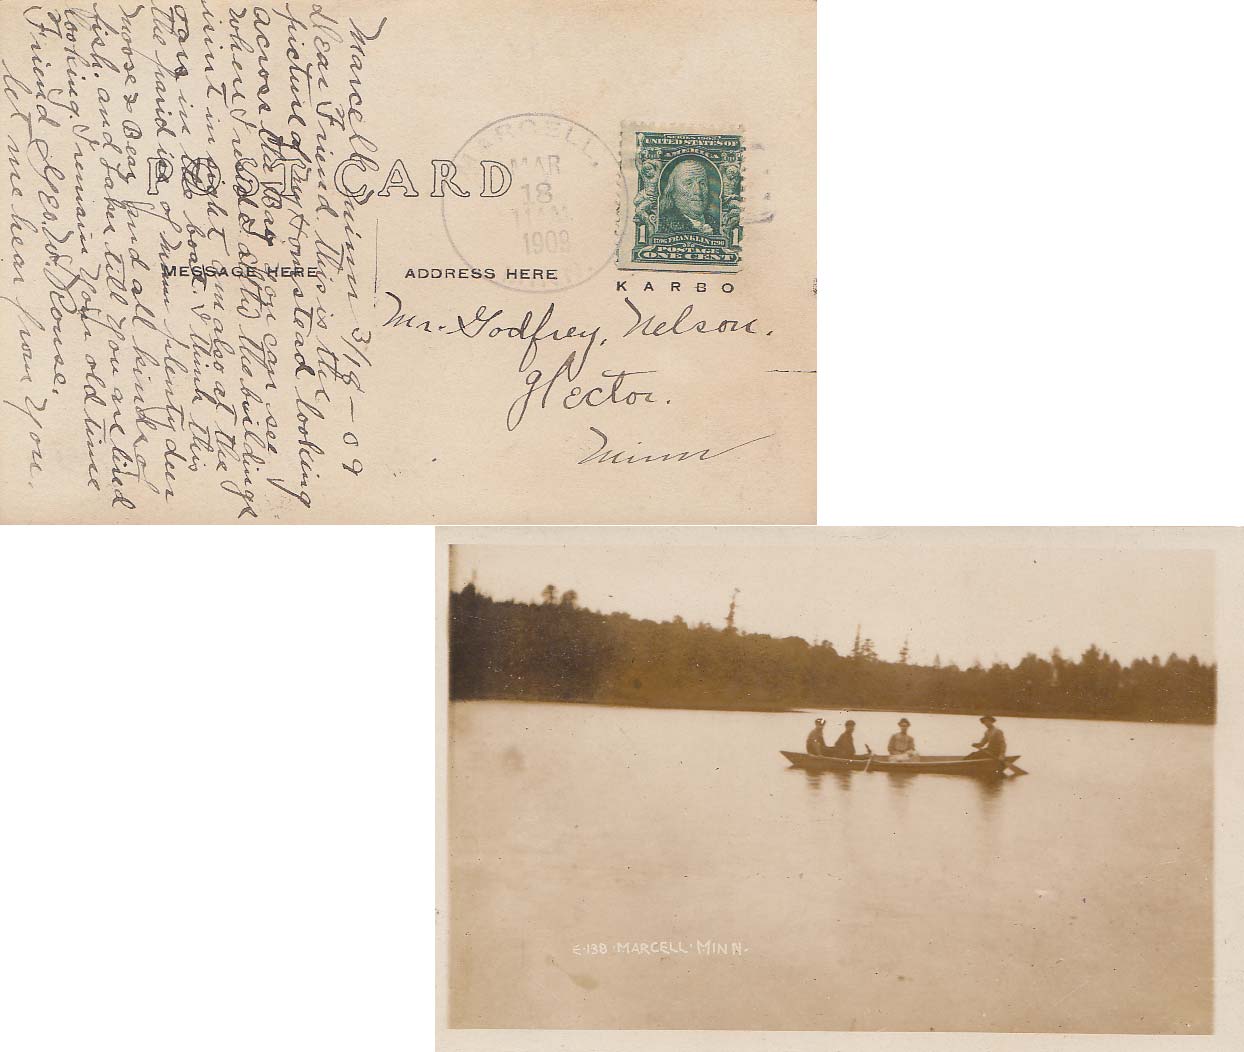 POST CARD
MESSAGE HERE
ADDRESS HERE
Marcell Minn 3/18-09
Dear Friend. this is the
picture of my Homestead looking
across the Bay you can see
where I reside altho the buildings
isint in sight I'm also at the
oars in the boat. I think this
the paridise of Minn plenty deer
Moose & Bear and all kinds of
fish. and Lakes till you are tired
looking. I remain your old time
Friend Geo. W. Rouse.
let me hear from you.
MARCELL,
MAR
18
11 AM
1909
MINN.
SERIES 1902
UNITED STATES OF
AMERICA
1 1
1706 FRANKLIN 1790
POSTAGE
ONE CENT
KARBO
Mr. Godfrey, Nelson.
Hector.
Minn
E-138 · MARCELL · MINN.